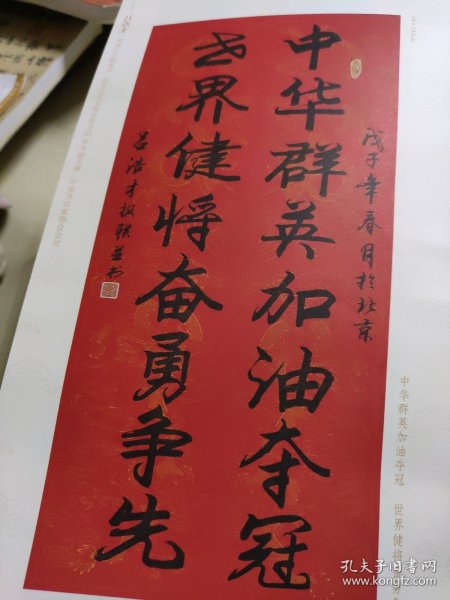 中华群英加油夺冠
戊子年春月於北京
世界健将奋勇争先
吕浩才撰联并书
中华群英加油夺冠 世界健将
孔夫子旧书网